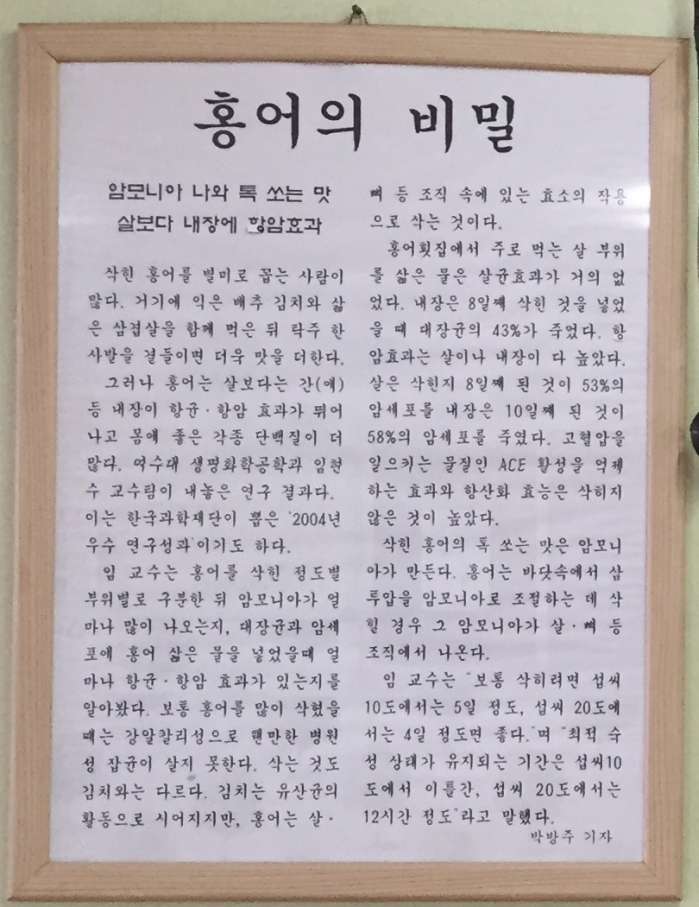 홍어의 비밀
암모니아 나와 톡 쏘는 맛
살보다 내장에 항암효과
삭힌 홍어를 별미로 꼽는 사람이
많다. 거기에 익은 배추 김치와 삶
은 삼겹살을 함께 먹은 뒤 탁주 한
사발을 곁들이면 더욱 맛을 더한다.
그러나 홍어는 살보다는 간(애)
등 내장이 항균·항암 효과가 뛰어
나고 몸에 좋은 각종 단백질이 더
많다. 여수대 생명화학공학과 임현
수 교수팀이 내놓은 연구 결과다.
이는 한국과학재단이 뽑은 '2004년
우수 연구성과'이기도 하다.
임 교수는 홍어를 삭힌 정도별
부위별로 구분한 뒤 암모니아가 얼
마나 많이 나오는지, 대장균과 암세
포에 홍어 삶은 물을 넣었을때 얼
마나 항균·항암 효과가 있는지를
알아봤다. 보통 홍어를 많이 삭혔을
때는 강알칼리성으로 웬만한 병원
성 잡균이 살지 못한다. 삭는 것도
김치와는 다르다. 김치는 유산균의
활동으로 시어지지만, 홍어는 살·
뼈 등 조직 속에 있는 효소의 작용
으로 삭는 것이다.
홍어횟집에서 주로 먹는 살 부위
를 삶은 물은 살균효과가 거의 없
었다. 내장은 8일째 삭힌 것을 넣었
을 때 대장균의 43%가 죽었다. 항
암효과는 살이나 내장이 다 높았다.
살은 삭힌지 8일째 된 것이 53%의
암세포를 내장은 10일째 된 것이
58%의 암세포를 죽였다. 고혈압을
일으키는 물질인 ACE 활성을 억제
하는 효과와 항산화 효능은 삭히지
않은 것이 높았다.
삭힌 홍어의 톡 쏘는 맛은 암모니
아가 만든다. 홍어는 바닷속에서 삼
투압을 암모니아로 조절하는 데 삭
힐 경우 그 암모니아가 살·뼈 등
조직에서 나온다.
임 교수는 "보통 삭히려면 섭씨
10도에서는 5일 정도, 섭씨 20도에
서는 4일 정도면 좋다."며 "최적 숙
성 상태가 유지되는 기간은 섭씨10
도에서 이틀간, 섭씨 20도에서는
12시간 정도"라고 말했다.
박방주 기자